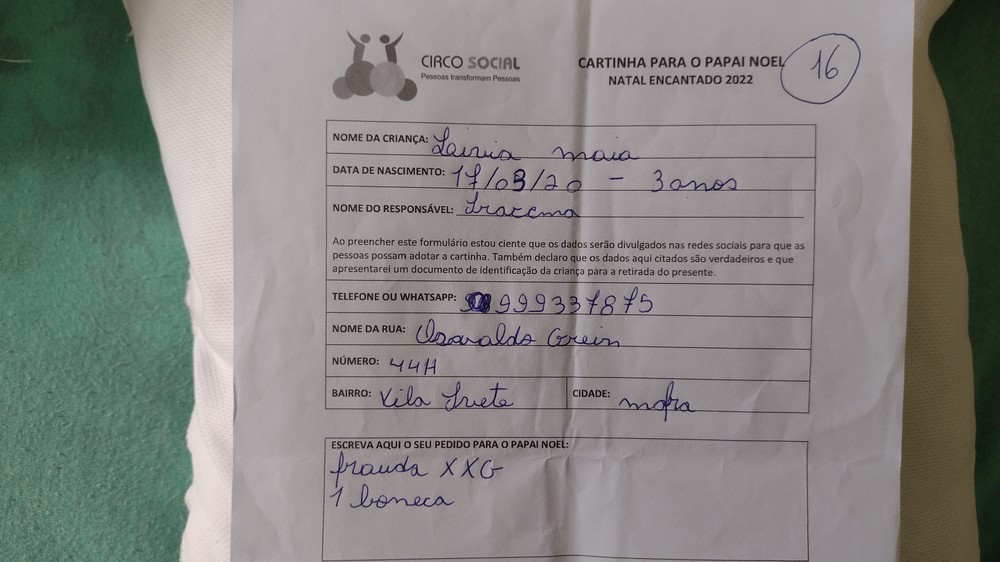 CIRCO SOCIAL
Pessoas transformam Pessoas
CARTINHA PARA O PAPAI NOEL
NATAL ENCANTADO 2022
16
NOME DA CRIANÇA: Lairia maia
DATA DE NASCIMENTO: 17/03/20 - 3 anos
NOME DO RESPONSÁVEL: Iracema
Ao preencher este formulário estou ciente que os dados serão divulgados nas redes sociais para que as
pessoas possam adotar a cartinha. Também declaro que os dados aqui citados são verdadeiros e que
apresentarei um documento de identificação da criança para a retirada do presente.
TELEFONE OU WHATSAPP: 999337875
NOME DA RUA: Osvaldo Grein
NÚMERO: 44H
BAIRRO: Vila Ivete CIDADE: mafra
ESCREVA AQUI O SEU PEDIDO PARA O PAPAI NOEL:
frauda XXG
1 boneca